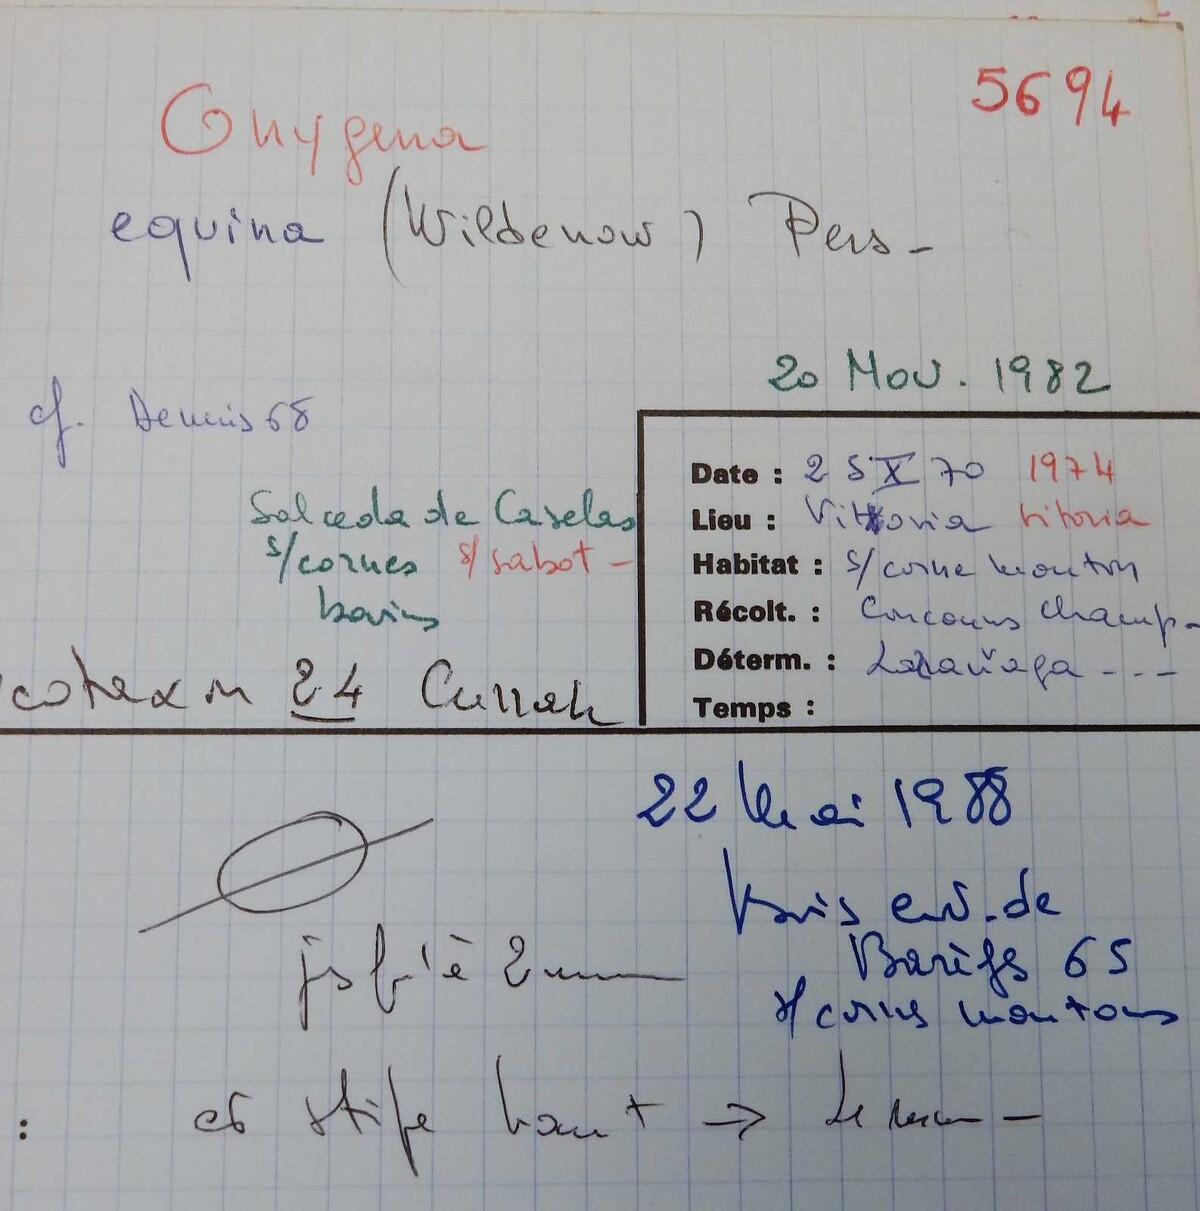 5694
Onygena
equina (Wildenow) Pers-
20 Nov. 1982
cf. Dennis 68
Salceda de Caselas
s/cornes s/sabot -
bovins
24
Date : 25 X 70 1974
Lieu : Vittoria Vitoria
Habitat : s/corne mouton
Récolt. : Concours champ-
Déterm. :
Temps :
22 Mai 1988
env. de
Barèges 65
s/cornes moutons
jsqu'à 2mm
et stipe haut → 4mm -
: